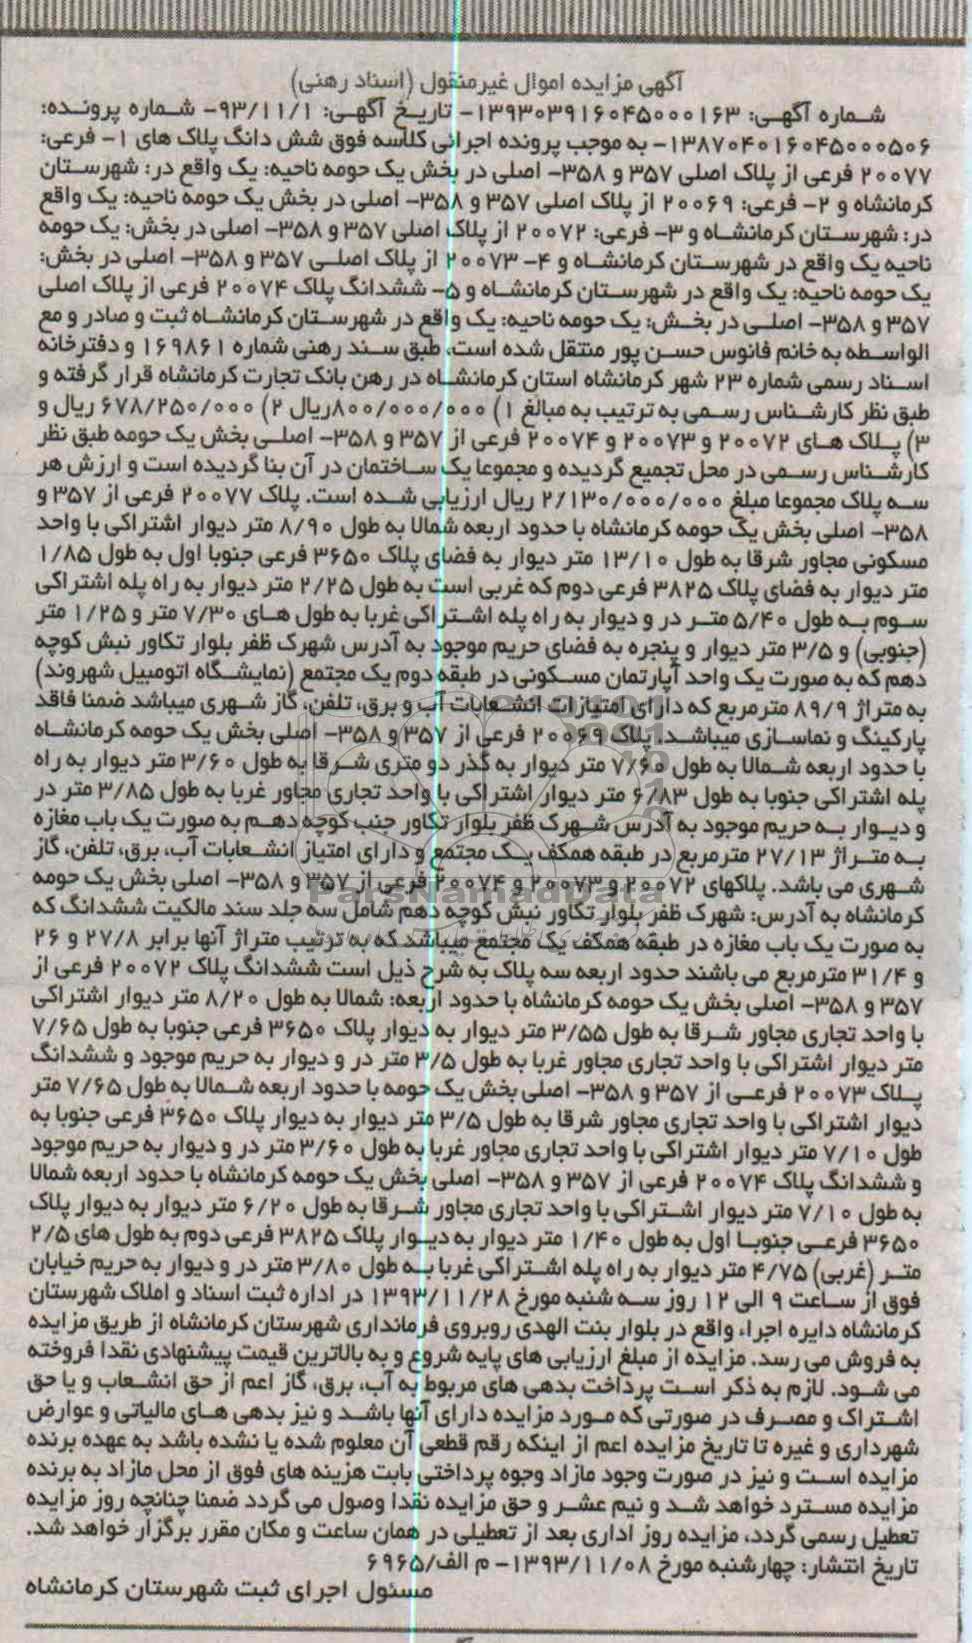 آگهی مزایده اموال غیرمنقول (اسناد رهنی)
شماره آگهی: ۱۳۹۳۰۳۹۱۶۰۴۵۰۰۰۱۶۳- تاریخ آگهی: ۹۳/۱۱/۱- شماره پرونده:
۱۳۸۷۰۴۰۱۶۰۴۵۰۰۰۵۰۶- به موجب پرونده اجرائی کلاسه فوق شش دانگ پلاک های ۱- فرعی:
۲۰۰۷۷ فرعی از پلاک اصلی ۳۵۷ و ۳۵۸- اصلی در بخش یک حومه ناحیه: یک واقع در: شهرستان
کرمانشاه و ۲- فرعی: ۲۰۰۶۹ از پلاک اصلی ۳۵۷ و ۳۵۸- اصلی در بخش یک حومه ناحیه: یک واقع
در: شهرستان کرمانشاه و ۳- فرعی: ۲۰۰۷۲ از پلاک اصلی ۳۵۷ و ۳۵۸- اصلی در بخش: یک حومه
ناحیه یک واقع در شهرستان کرمانشاه و ۴- ۲۰۰۷۳ از پلاک اصلی ۳۵۷ و ۳۵۸- اصلی در بخش:
یک حومه ناحیه: یک واقع در شهرستان کرمانشاه و ۵- ششدانگ پلاک ۲۰۰۷۴ فرعی از پلاک اصلی
۳۵۷ و ۳۵۸- اصلی در بخش: یک حومه ناحیه: یک واقع در شهرستان کرمانشاه ثبت و صادر و مع
الواسطه به خانم فانوس حسن پور منتقل شده است، طبق سند رهنی شماره ۱۶۹۸۶۱ و دفترخانه
اسناد رسمی شماره ۲۳ شهر کرمانشاه استان کرمانشاه در رهن بانک تجارت کرمانشاه قرار گرفته و
طبق نظر کارشناس رسمی به ترتیب به مبالغ ۱) ۸۰۰/۰۰۰/۰۰۰ریال ۲) ۶۷۸/۲۵۰/۰۰۰ ریال و
۳) پلاک های ۲۰۰۷۲ و ۲۰۰۷۳ و ۲۰۰۷۴ فرعی از ۳۵۷ و ۳۵۸- اصلی بخش یک حومه طبق نظر
کارشناس رسمی در محل تجمیع گردیده و مجموعا یک ساختمان در آن بنا گردیده است و ارزش هر
سه پلاک مجموعا مبلغ ۲/۱۳۰/۰۰۰/۰۰۰ ریال ارزیابی شده است. پلاک ۲۰۰۷۷ فرعی از ۳۵۷ و
۳۵۸- اصلی بخش یک حومه کرمانشاه با حدود اربعه شمالا به طول ۸/۹۰ متر دیوار اشتراکی با واحد
مسکونی مجاور شرقا به طول ۱۳/۱۰ متر دیوار به فضای پلاک ۳۶۵۰ فرعی جنوبا اول به طول ۱/۸۵
متر دیوار به فضای پلاک ۳۸۲۵ فرعی دوم که غربی است به طول ۲/۲۵ متر دیوار به راه پله اشتراکی
سوم به طول ۵/۴۰ متر در و دیوار به راه پله اشتراکی غربا به طول های ۷/۳۰ متر و ۱/۲۵ متر
(جنوبی) و ۳/۵ متر دیوار و پنجره به فضای حریم موجود به آدرس شهرک ظفر بلوار تکاور نبش کوچه
دهم که به صورت یک واحد آپارتمان مسکونی در طبقه دوم یک مجتمع (نمایشگاه اتومبیل شهروند)
به متراژ ۸۹/۹ مترمربع که دارای امتیازات انشعابات آب و برق، تلفن، گاز شهری میباشد ضمنا فاقد
پارکینگ و نماسازی میباشد. پلاک ۲۰۰۶۹ فرعی از ۳۵۷ و ۳۵۸- اصلی بخش یک حومه کرمانشاه
با حدود اربعه شمالا به طول ۷/۶۰ متر دیوار به گذر دو متری شرقا به طول ۳/۶۰ متر دیوار به راه
پله اشتراکی جنوبا به طول ۶/۸۳ متر دیوار اشتراکی با واحد تجاری مجاور غربا به طول ۳/۸۵ متر در
و دیوار به حریم موجود به آدرس شهرک ظفر بلوار تکاور جنب کوچه دهم به صورت یک باب مغازه
به متراژ ۲۷/۱۳ مترمربع در طبقه همکف یک مجتمع و دارای امتیاز انشعابات آب، برق، تلفن، گاز
شهری می باشد. پلاکهای ۲۰۰۷۲ و ۲۰۰۷۳ و ۲۰۰۷۴ فرعی از ۳۵۷ و ۳۵۸- اصلی بخش یک حومه
کرمانشاه به آدرس: شهرک ظفر بلوار تکاور نبش کوچه دهم شامل سه جلد سند مالکیت ششدانگ که
به صورت یک باب مغازه در طبقه همکف یک مجتمع میباشد که به ترتیب متراژ آنها برابر ۲۷/۸ و ۲۶
و ۳۱/۴ مترمربع می باشند حدود اربعه سه پلاک به شرح ذیل است ششدانگ پلاک ۲۰۰۷۲ فرعی از
۳۵۷ و ۳۵۸- اصلی بخش یک حومه کرمانشاه با حدود اربعه: شمالا به طول ۸/۲۰ متر دیوار اشتراکی
با واحد تجاری مجاور شرقا به طول ۳/۵۵ متر دیوار به دیوار پلاک ۳۶۵۰ فرعی جنوبا به طول ۷/۶۵
متر دیوار اشتراکی با واحد تجاری مجاور غربا به طول ۳/۵ متر در و دیوار به حریم موجود و ششدانگ
پلاک ۲۰۰۷۳ فرعی از ۳۵۷ و ۳۵۸- اصلی بخش یک حومه با حدود اربعه شمالا به طول ۷/۶۵ متر
دیوار اشتراکی با واحد تجاری مجاور شرقا به طول ۳/۵ متر دیوار به دیوار پلاک ۳۶۵۰ فرعی جنوبا به
طول ۷/۱۰ متر دیوار اشتراکی با واحد تجاری مجاور غربا به طول ۳/۶۰ متر در و دیوار به حریم موجود
و ششدانگ پلاک ۲۰۰۷۴ فرعی از ۳۵۷ و ۳۵۸- اصلی بخش یک حومه کرمانشاه با حدود اربعه شمالا
به طول ۷/۱۰ متر دیوار اشتراکی با واحد تجاری مجاور شرقا به طول ۶/۲۰ متر دیوار به دیوار پلاک
۳۶۵۰ فرعی جنوبا اول به طول ۱/۴۰ متر دیوار به دیوار پلاک ۳۸۲۵ فرعی دوم به طول های ۲/۵
متر (غربی) ۴/۷۵ متر دیوار به راه پله اشتراکی غربا به طول ۳/۸۰ متر در و دیوار به حریم خیابان
فوق از ساعت ۹ الی ۱۲ روز سه شنبه مورخ ۱۳۹۳/۱۱/۲۸ در اداره ثبت اسناد و املاک شهرستان
کرمانشاه دایره اجرا، واقع در بلوار بنت الهدی روبروی فرمانداری شهرستان کرمانشاه از طریق مزایده
به فروش می رسد. مزایده از مبلغ ارزیابی های پایه شروع و به بالاترین قیمت پیشنهادی نقدا فروخته
می شود. لازم به ذکر است پرداخت بدهی های مربوط به آب، برق، گاز اعم از حق انشعاب و یا حق
اشتراک و مصرف در صورتی که مورد مزایده دارای آنها باشد و نیز بدهی های مالیاتی و عوارض
شهرداری و غیره تا تاریخ مزایده اعم از اینکه رقم قطعی آن معلوم شده یا نشده باشد به عهده برنده
مزایده است و نیز در صورت وجود مازاد وجوه پرداختی بابت هزینه های فوق از محل مازاد به برنده
مزایده مسترد خواهد شد و نیم عشر و حق مزایده نقدا وصول می گردد ضمنا چنانچه روز مزایده
تعطیل رسمی گردد، مزایده روز اداری بعد از تعطیلی در همان ساعت و مکان مقرر برگزار خواهد شد.
تاریخ انتشار: چهارشنبه مورخ ۱۳۹۳/۱۱/۰۸- م الف/۶۹۶۵
مسئول اجرای ثبت شهرستان کرمانشاه
ParsNamadData